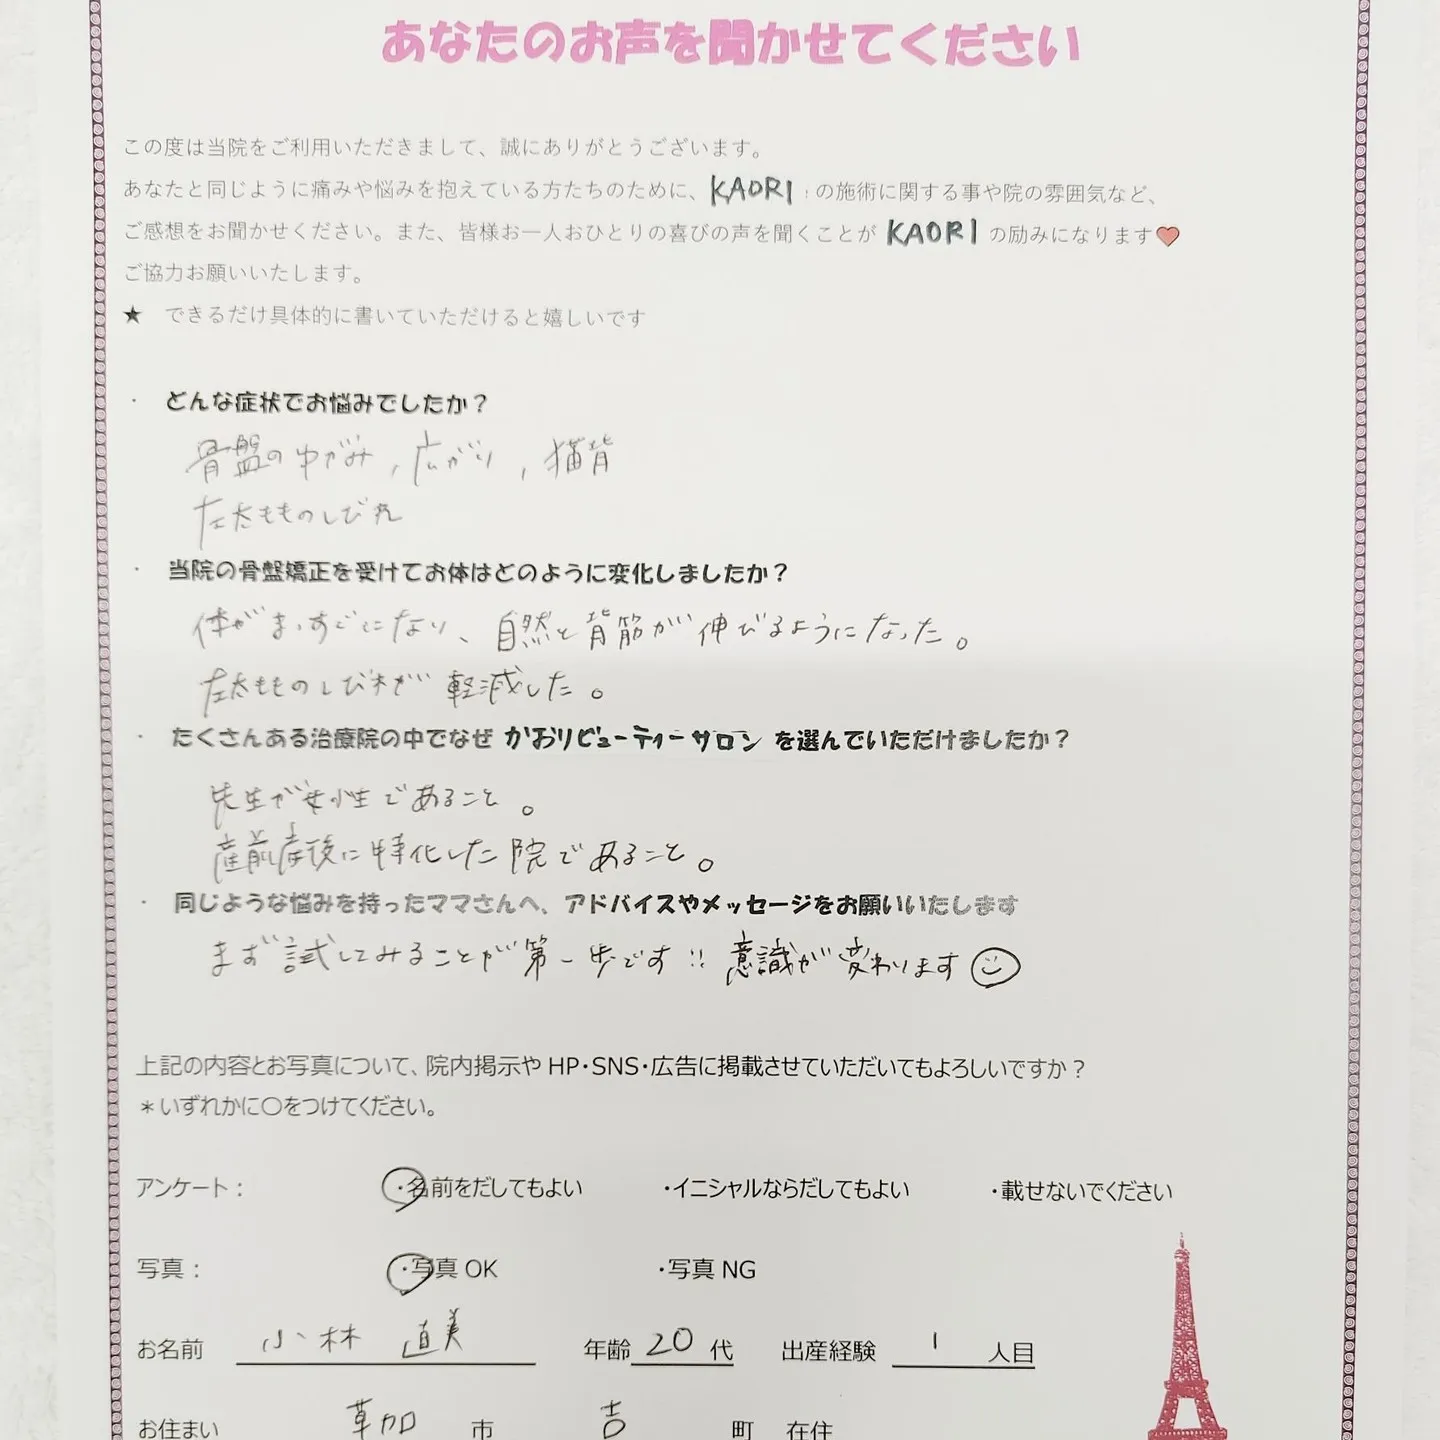 あなたのお声を聞かせてください
この度は当院をご利用いただきまして、誠にありがとうございます。
あなたと同じように痛みや悩みを抱えている方たちのために、KAORIの施術に関する事や院の雰囲気など、
ご感想をお聞かせください。また、皆様お一人おひとりの喜びの声を聞くことが KAORI の励みになります♥
ご協力お願いいたします。
★ できるだけ具体的に書いていただけると嬉しいです
・ どんな症状でお悩みでしたか?
骨盤のゆがみ, 広がり, 猫背
左太もものしびれ
・ 当院の骨盤矯正を受けてお体はどのように変化しましたか?
体がまっすぐになり、自然と背筋が伸びるようになった。
左太もものしびれが軽減した。
・ たくさんある治療院の中でなぜ かおりビューティーサロン を選んでいただけましたか?
先生が女性であること。
産前産後に特化した院であること。
・ 同じような悩みを持ったママさんへ、アドバイスやメッセージをお願いいたします
まず試してみることが第一歩です!! 意識が変わります
上記の内容とお写真について、院内掲示や HP・SNS・広告に掲載させていただいてもよろしいですか?
*いずれかに〇をつけてください。
アンケート: ・名前をだしてもよい ・イニシャルならだしてもよい ・載せないでください
写真: ・写真 OK ・写真 NG
お名前 小林 直美 年齢 20 代 出産経験 1 人目
お住まい 草加 市 吉 町 在住